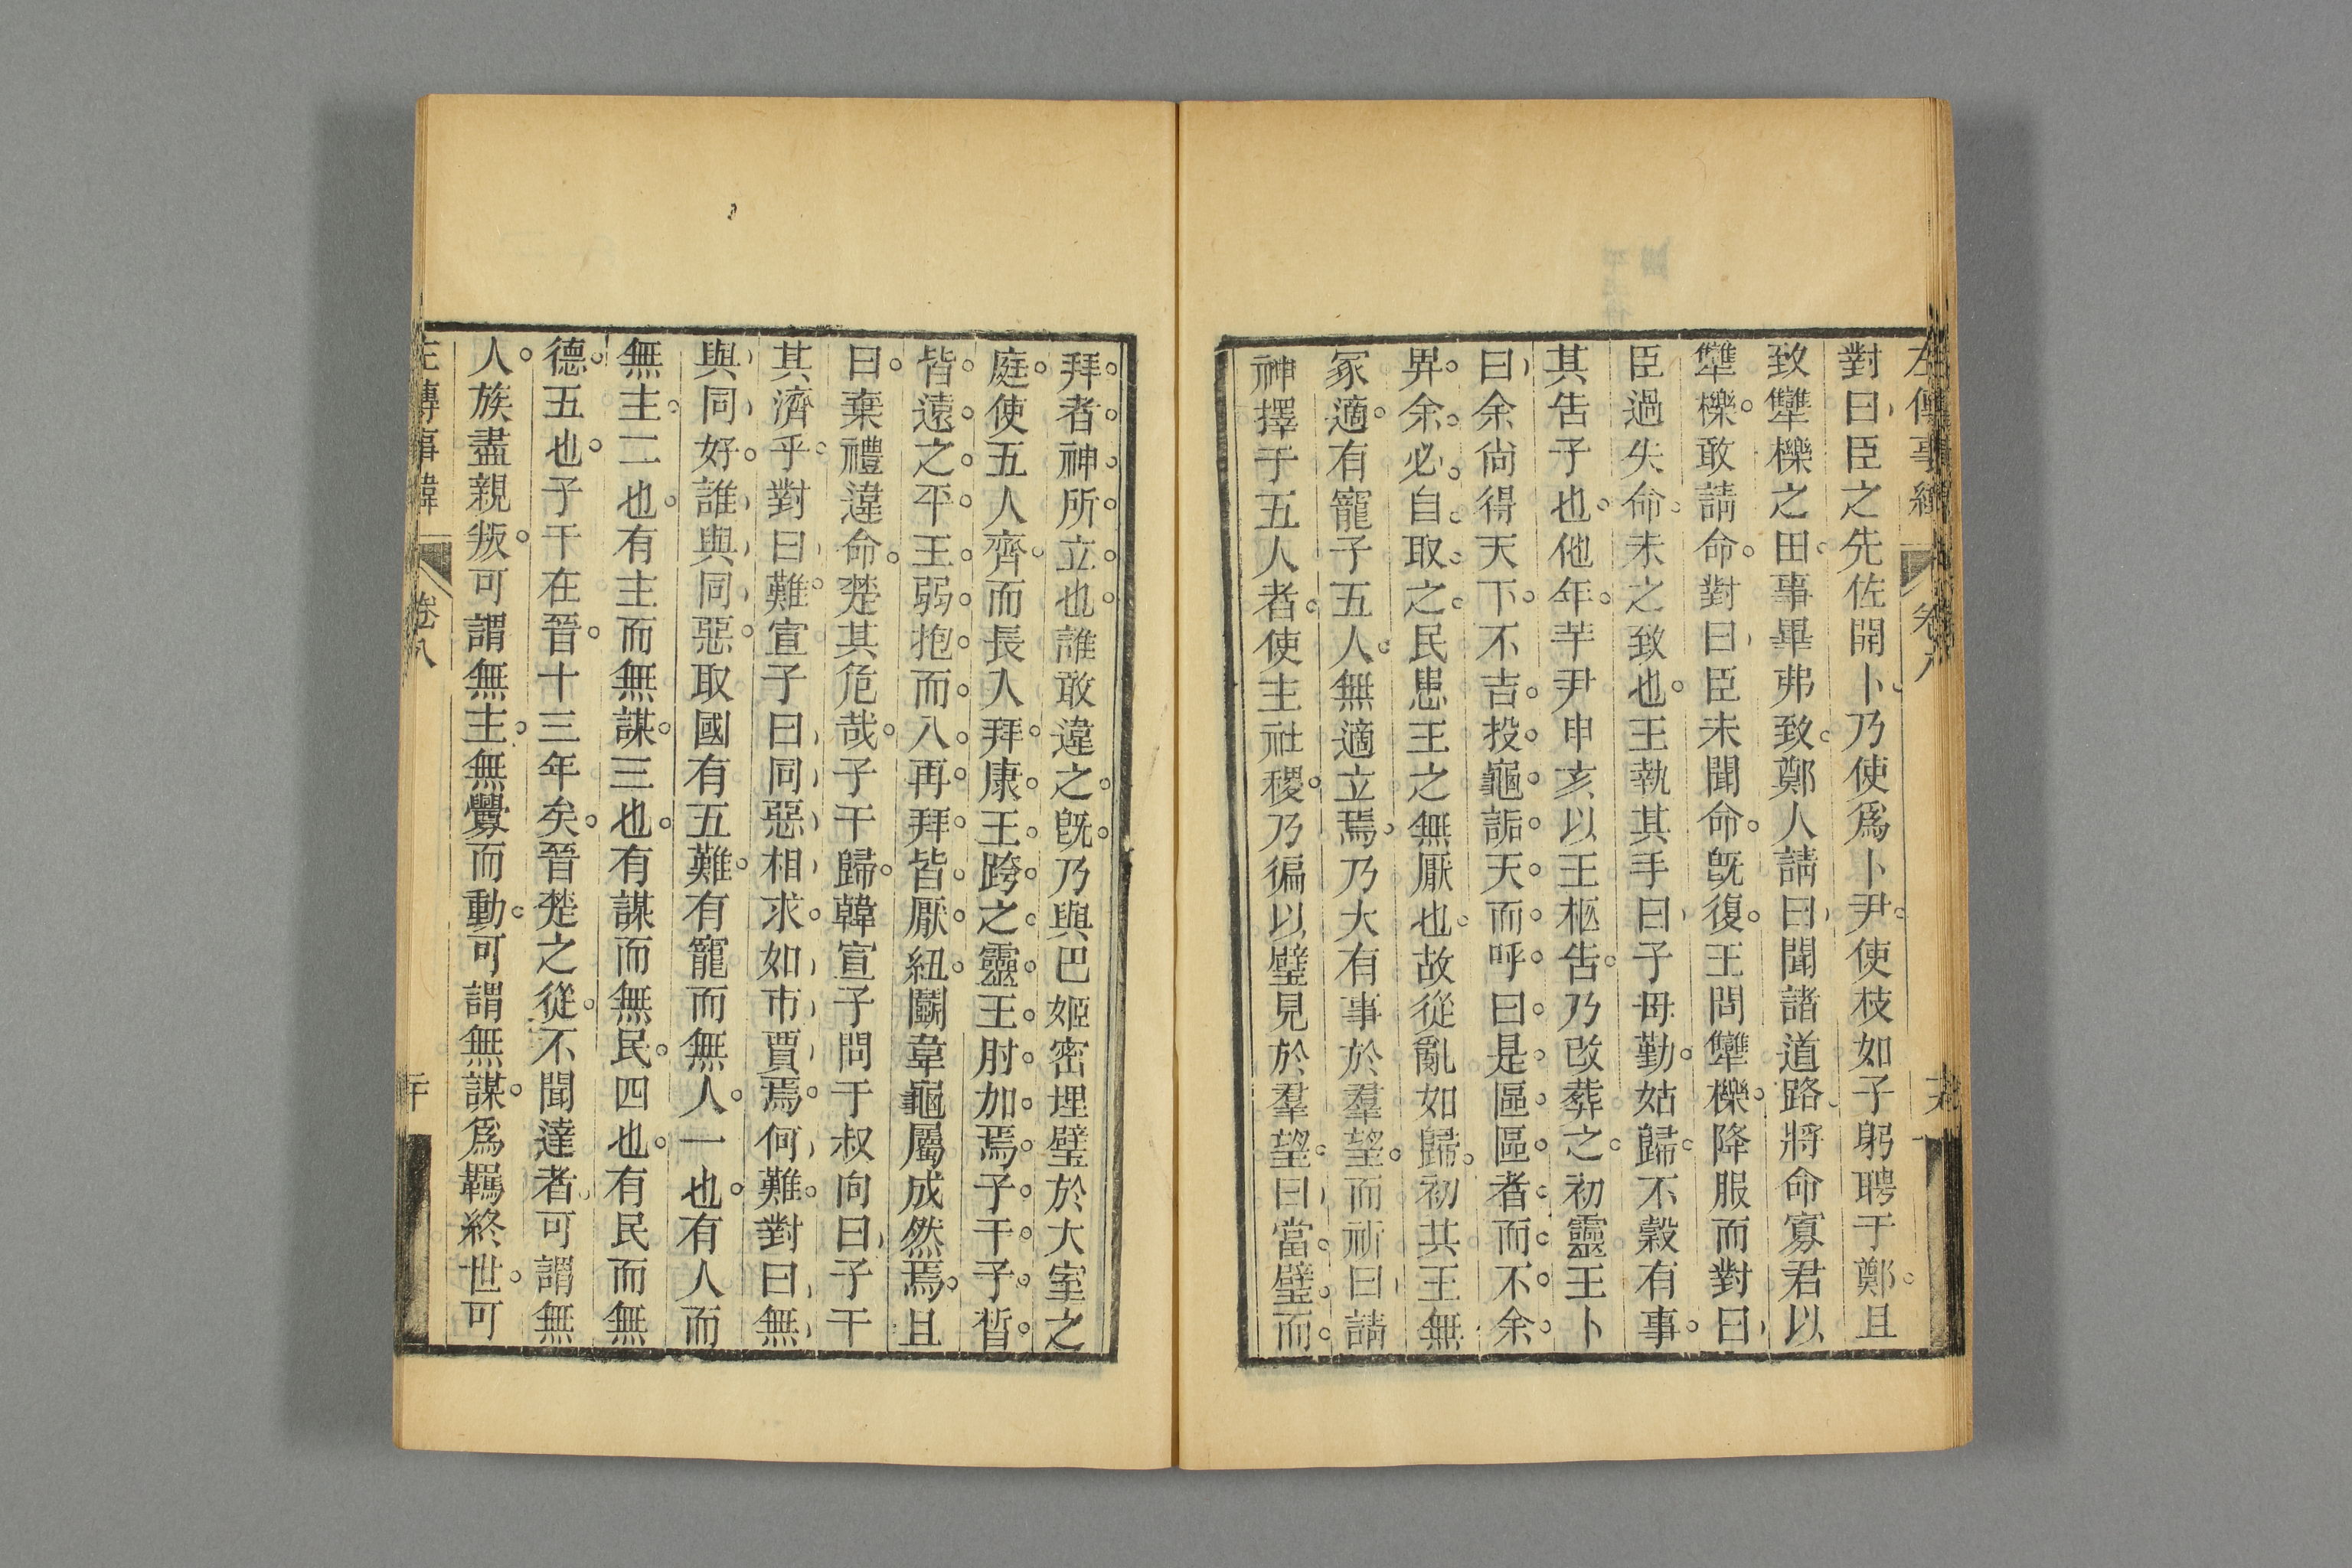 左傳事緯 卷八
對曰臣之先佐開卜乃使爲卜尹使枝如子躬聘于鄭且
致犨櫟之田事畢弗致鄭人請曰聞諸道路將命寡君以
犨櫟敢請命對曰臣未聞命旣復王問犨櫟降服而對曰
臣過失命未之致也王執其手曰子毋勤姑歸不穀有事
其告子也他年芋尹申亥以王柩告乃改葬之初靈王卜
曰余尚得天下不吉投龜詬天而呼曰是區區者而不余
畀余必自取之民患王之無厭也故從亂如歸初共王無
冢適有寵子五人無適立焉乃大有事於羣望而祈曰請
神擇于五人者使主社稷乃徧以璧見於羣望曰當璧而
拜者神所立也誰敢違之旣乃與巴姬密埋璧於大室之
庭使五人齊而長入拜康王跨之靈王肘加焉子干子晳
皆遠之平王弱抱而入再拜皆厭紐鬬韋龜屬成然焉且
曰棄禮違命楚其危哉子干歸韓宣子問于叔向曰子干
其濟乎對曰難宣子曰同惡相求如市賈焉何難對曰無
與同好誰與同惡取國有五難有寵而無人一也有人而
無主二也有主而無謀三也有謀而無民四也有民而無
德五也子干在晉十三年矣晉楚之從不聞達者可謂無
人族盡親叛可謂無主無釁而動可謂無謀爲羈終世可
左傳事緯 卷八